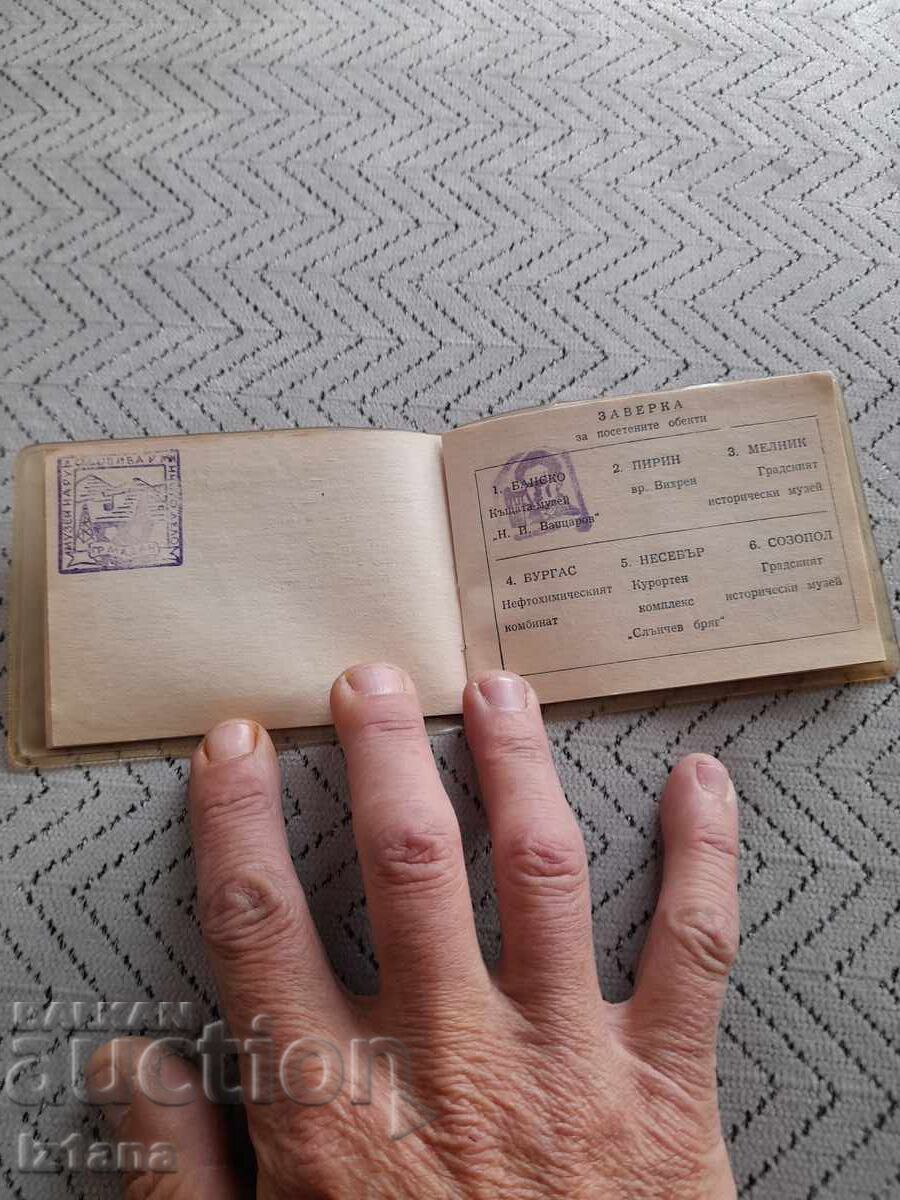 ЗАВЕРКА
за посетените обекти
1. БАНСКО
Къщата-музей
„Н. Й. Вапцаров"
2. ПИРИН
вр. Вихрен
3. МЕЛНИК
Градският
исторически музей
4. БУРГАС
Нефтохимическият
комбинат
5. НЕСЕБЪР
Курортен
комплекс
„Слънчев бряг"
6. СОЗОПОЛ
Градският
исторически музей
BALKAN
auction
iz1ana